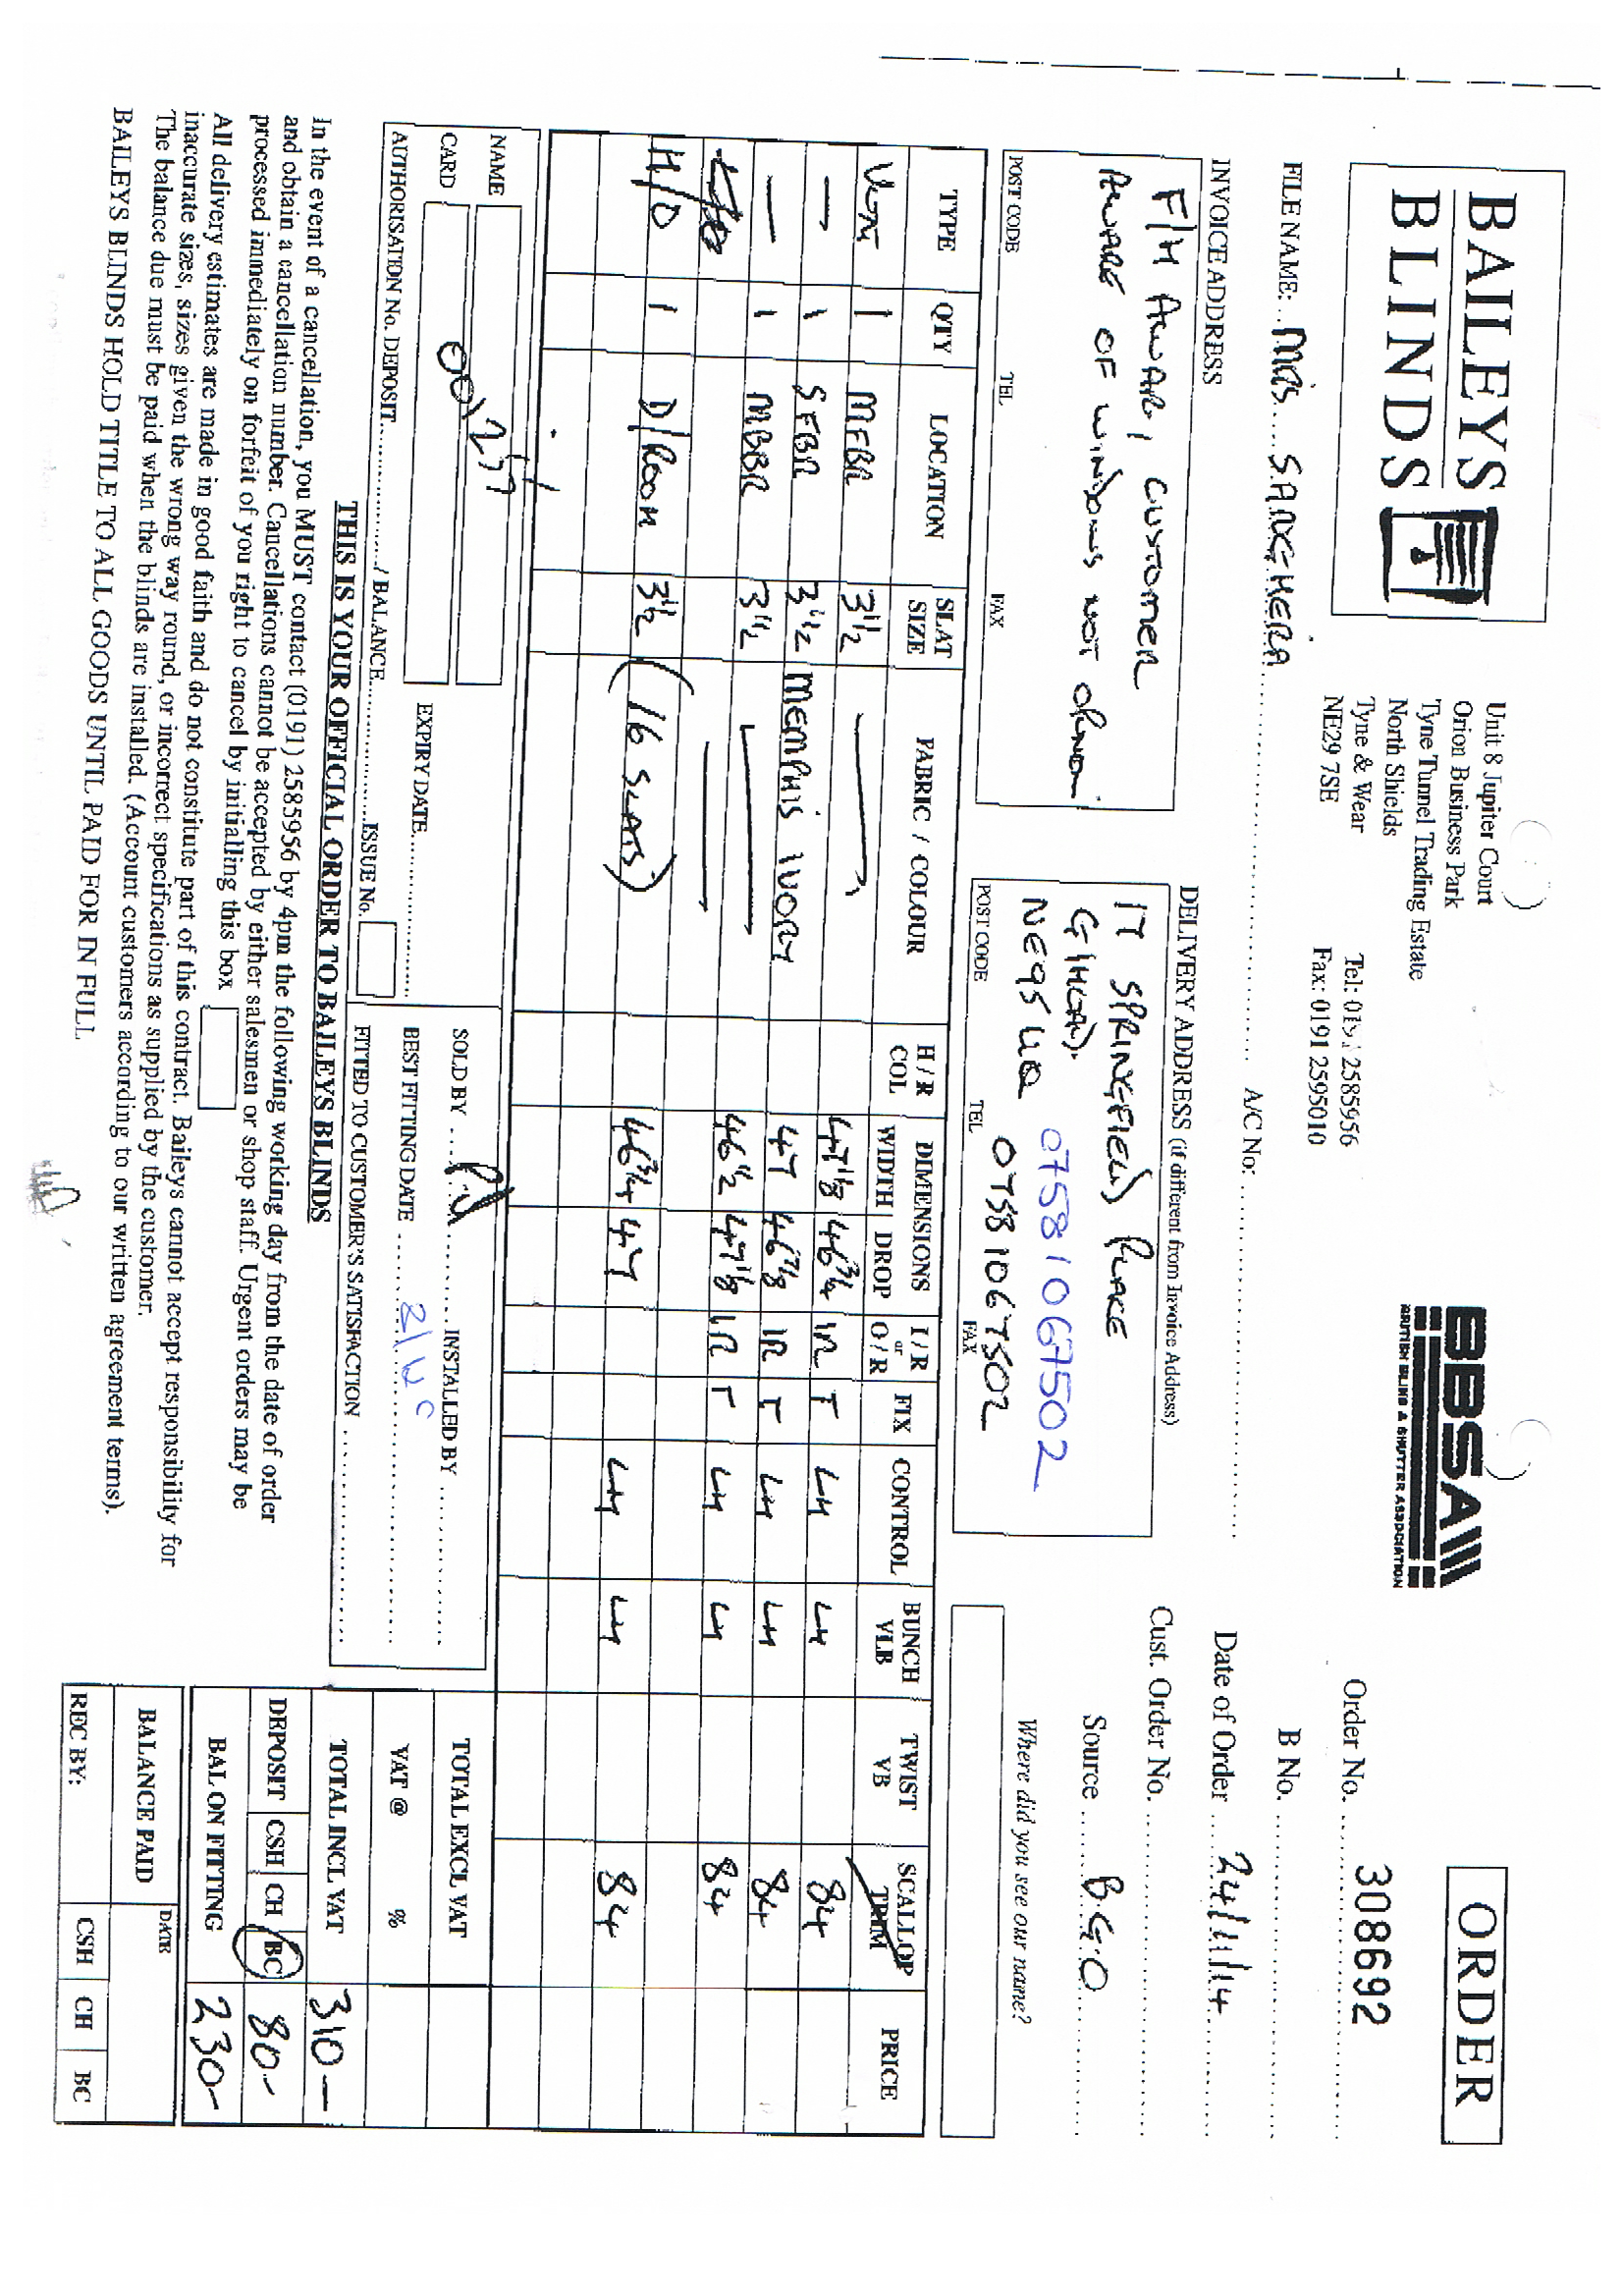 BAILEYS
BLINDS
Unit 8 Jupiter Court
Orion Business Park
Tyne Tunnel Trading Estate
North Shields
Tyne & Wear
NE29 7SE
Tel: 0191 2585956
Fax: 0191 2595010
BBSA
BRITISH BLIND & SHUTTER ASSOCIATION
ORDER
Order No. 308692
B No.
Date of Order 24/11/14
Cust. Order No.
Source BGO
Where did you see our name?
FILE NAME: MRS SANGHERA A/C No:
INVOICE ADDRESS
F/H AWARE, CUSTOMER
AWARE OF WINDOWS NOT
POST CODE TEL FAX
DELIVERY ADDRESS (if different from Invoice Address)
17 SPRINGFIELD PLACE
NE95
07581067502
07581067502
POST CODE TEL FAX
TYPE QTY LOCATION SLAT SIZE FABRIC / COLOUR H / R COL DIMENSIONS WIDTH DROP I / R or O / R FIX CONTROL BUNCH VLB TWIST VB SCALLOP TRIM PRICE
VERT 1 MFBR 3 1/2 — 47 1/8 46 3/4 IR T LH LH 84
— 1 SFBR 3 1/2 MEMPHIS IVORY 47 46 7/8 IR T LH LH 84
— 1 MBBR 3 1/2 — 46 1/2 47 1/8 IR T LH LH 84
H/O 1 D/ROOM 3 1/2 (16 SLATS) 46 3/4 47 LH LH 84
NAME
CARD
001277
EXPIRY DATE
AUTHORISATION No. DEPOSIT / BALANCE ISSUE No.
SOLD BY INSTALLED BY
BEST FITTING DATE
FITTED TO CUSTOMER'S SATISFACTION
THIS IS YOUR OFFICIAL ORDER TO BAILEYS BLINDS
In the event of a cancellation, you MUST contact (0191) 2585956 by 4pm the following working day from the date of order
and obtain a cancellation number. Cancellations cannot be accepted by either salesmen or shop staff. Urgent orders may be
processed immediately on forfeit of you right to cancel by initialling this box
All delivery estimates are made in good faith and do not constitute part of this contract. Baileys cannot accept responsibility for
inaccurate sizes, sizes given the wrong way round, or incorrect specifications as supplied by the customer.
The balance due must be paid when the blinds are installed. (Account customers according to our written agreement terms).
BAILEYS BLINDS HOLD TITLE TO ALL GOODS UNTIL PAID FOR IN FULL
TOTAL EXCL VAT
VAT @ %
TOTAL INCL VAT 310 —
DEPOSIT CSH CH BC 80 -
BAL ON FITTING 230 -
BALANCE PAID DATE
REC BY: CSH CH BC